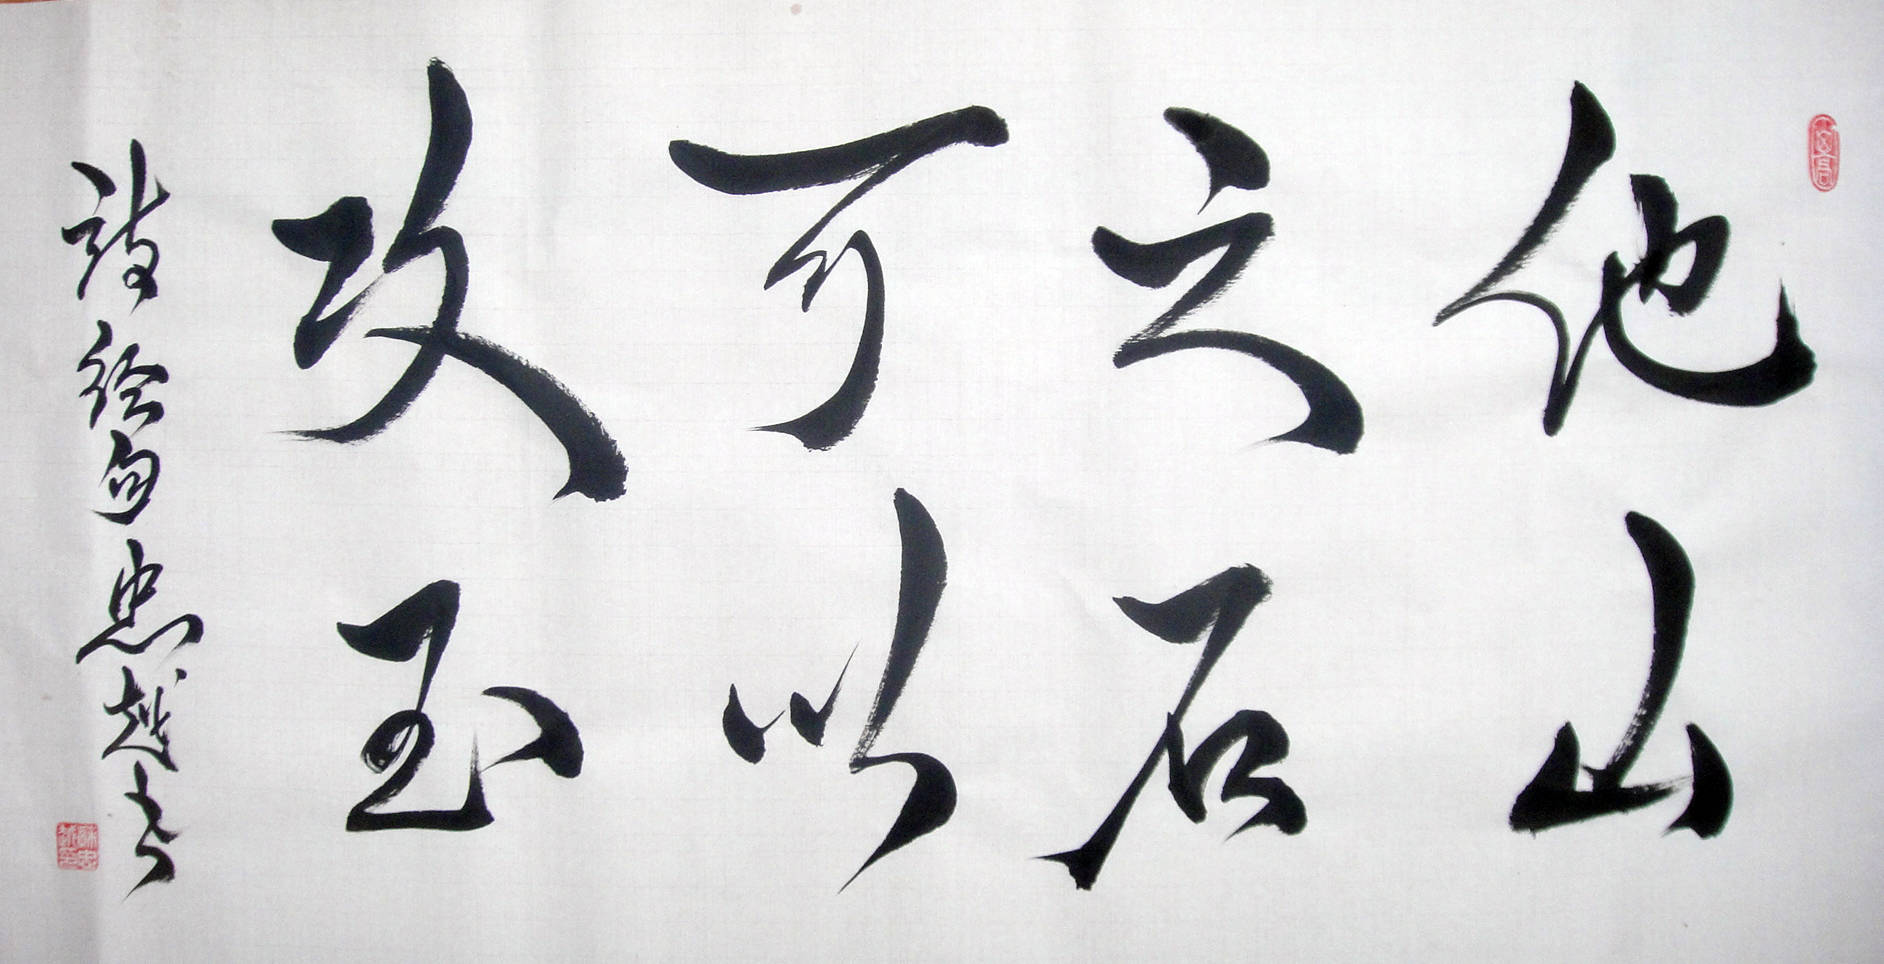 他山
之石
可以
攻玉
诗经句 忠越书